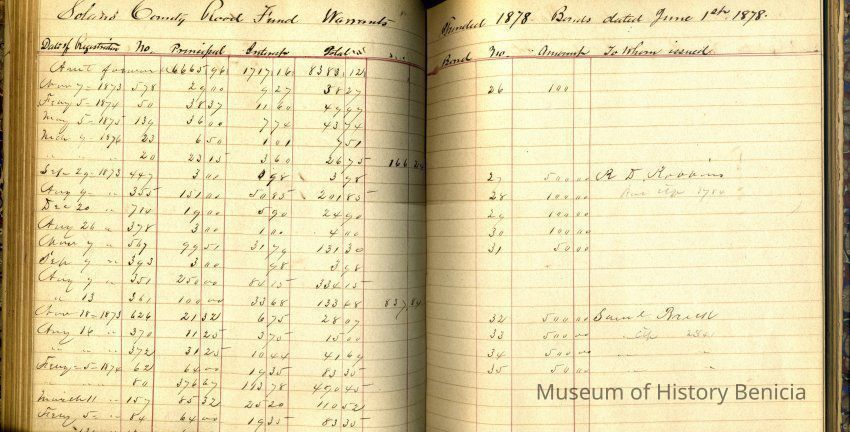 Solano County Road Fund Warrants
Funded 1878 Bonds dated June 1st 1878.
Date of Registration No. Principal Interest Total
Bond No. Amount To Whom issued
6665 96 1717 16 8383 12
Nov 7 - 1873 578 29 00 9 27 38 27
26 100
Feby 5 - 1874 50 38 37 11 60 49 97
May 5 - 1875 139 36 00 7 74 43 74
Mch 9 - 1876 23 6 50 1 01 7 51
" " " 20 23 15 3 60 26 75
Sep 29 - 1873 447 3 00 98 3 98
27 500 00 R D Robbins
Aug 9 - " 355 151 00 50 85 201 85
28 100 00
Dec 20 " 714 19 00 5 90 24 90
29 100 00
Aug 26 " 378 3 00 1 00 4 00
30 100 00
Nov 7 " 567 99 51 31 79 131 30
31 50 00
Sep 9 " 393 3 00 98 3 98
Aug 9 " 351 250 00 84 15 334 15
" 13 361 100 00 33 68 133 68
Nov 18 - 1873 626 21 32 6 75 28 07
32 500 00 Saml Brick
Aug 16 " 370 11 25 3 75 15 00
33 500 00
" " " 372 31 25 10 44 41 69
34 500 00 " "
Feby 5 - 1874 62 64 00 19 35 83 35
35 50 00 " "
80 376 67 113 78 490 45
March 11 " 157 85 32 25 20 110 52
Feby 5 - " 84 64 00 19 35 83 35
Museum of History Benicia